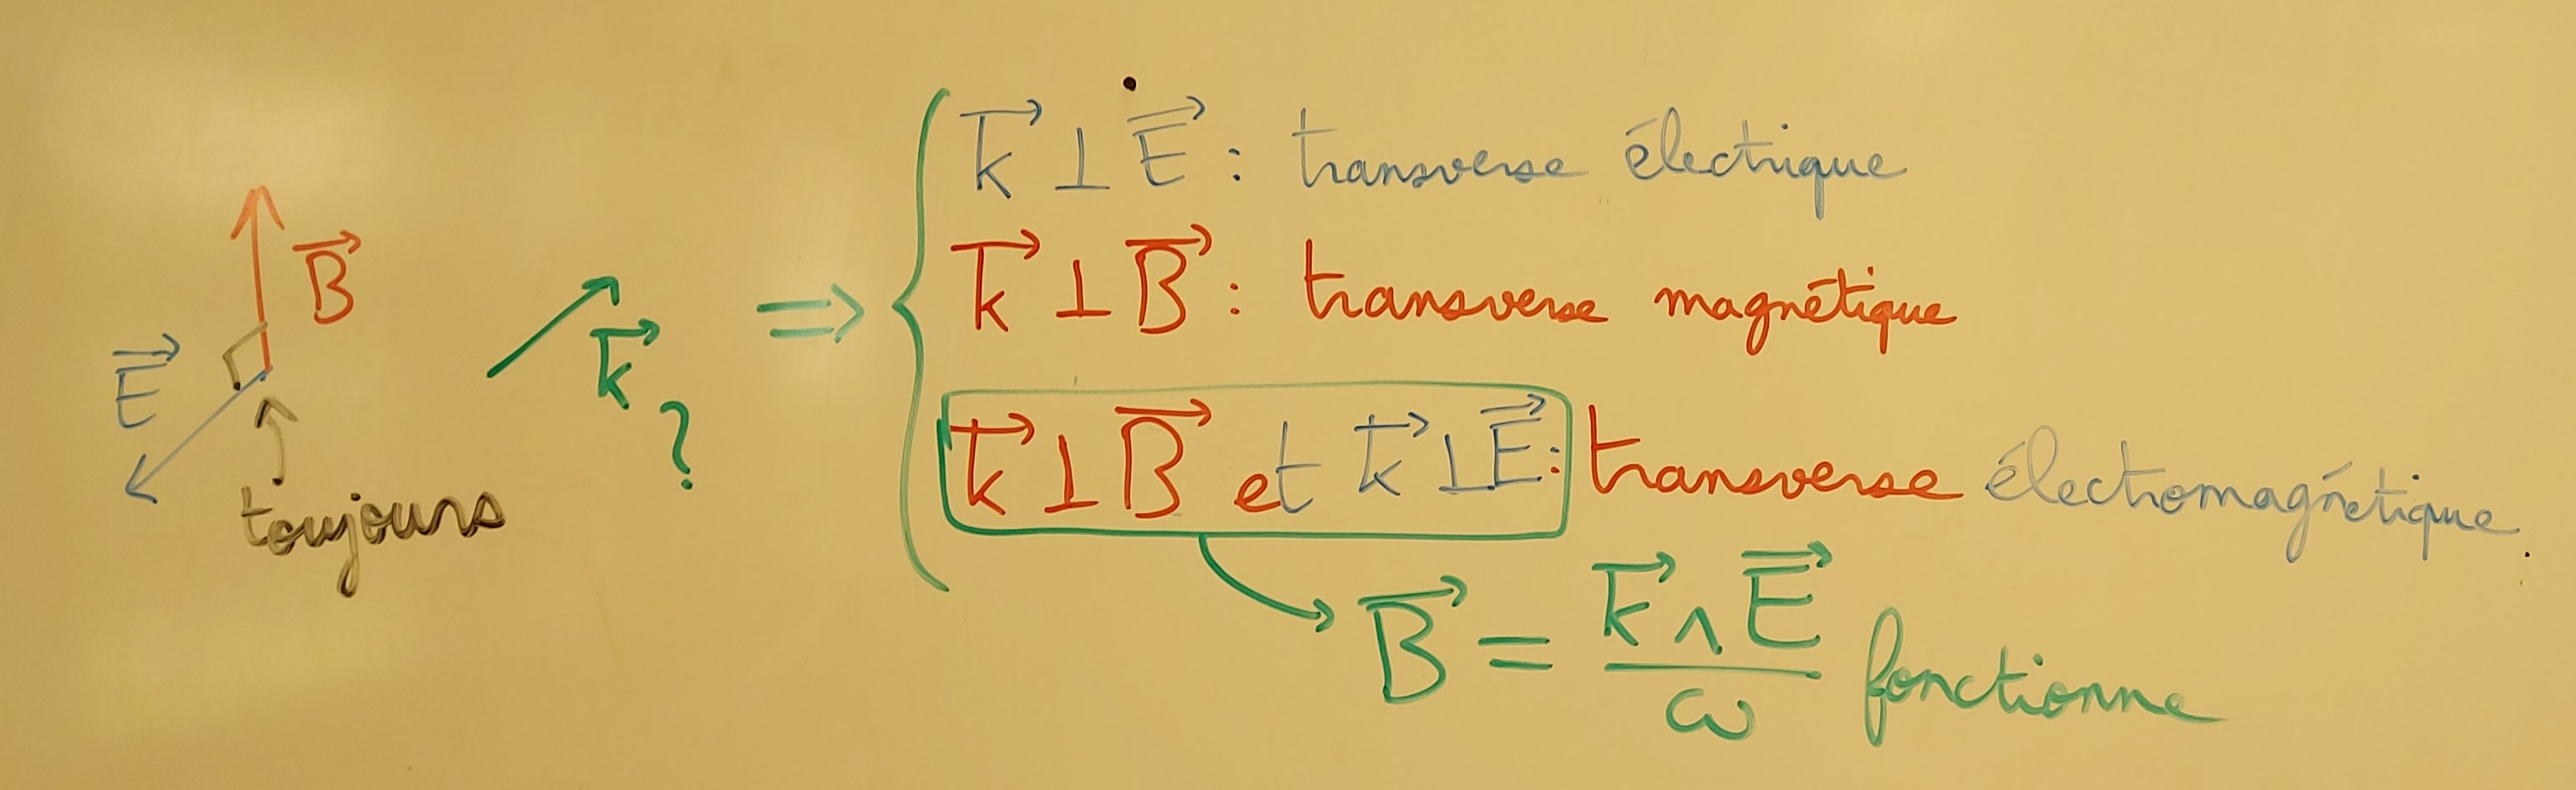 B⃗
E⃗
toujours
k⃗
?
⇒
k⃗ ⊥ E⃗ : transverse électrique
k⃗ ⊥ B⃗ : transverse magnétique
k⃗ ⊥ B⃗ et k⃗ ⊥ E⃗ : transverse électromagnétique.
B⃗ = k⃗ ∧ E⃗ / ω fonctionne